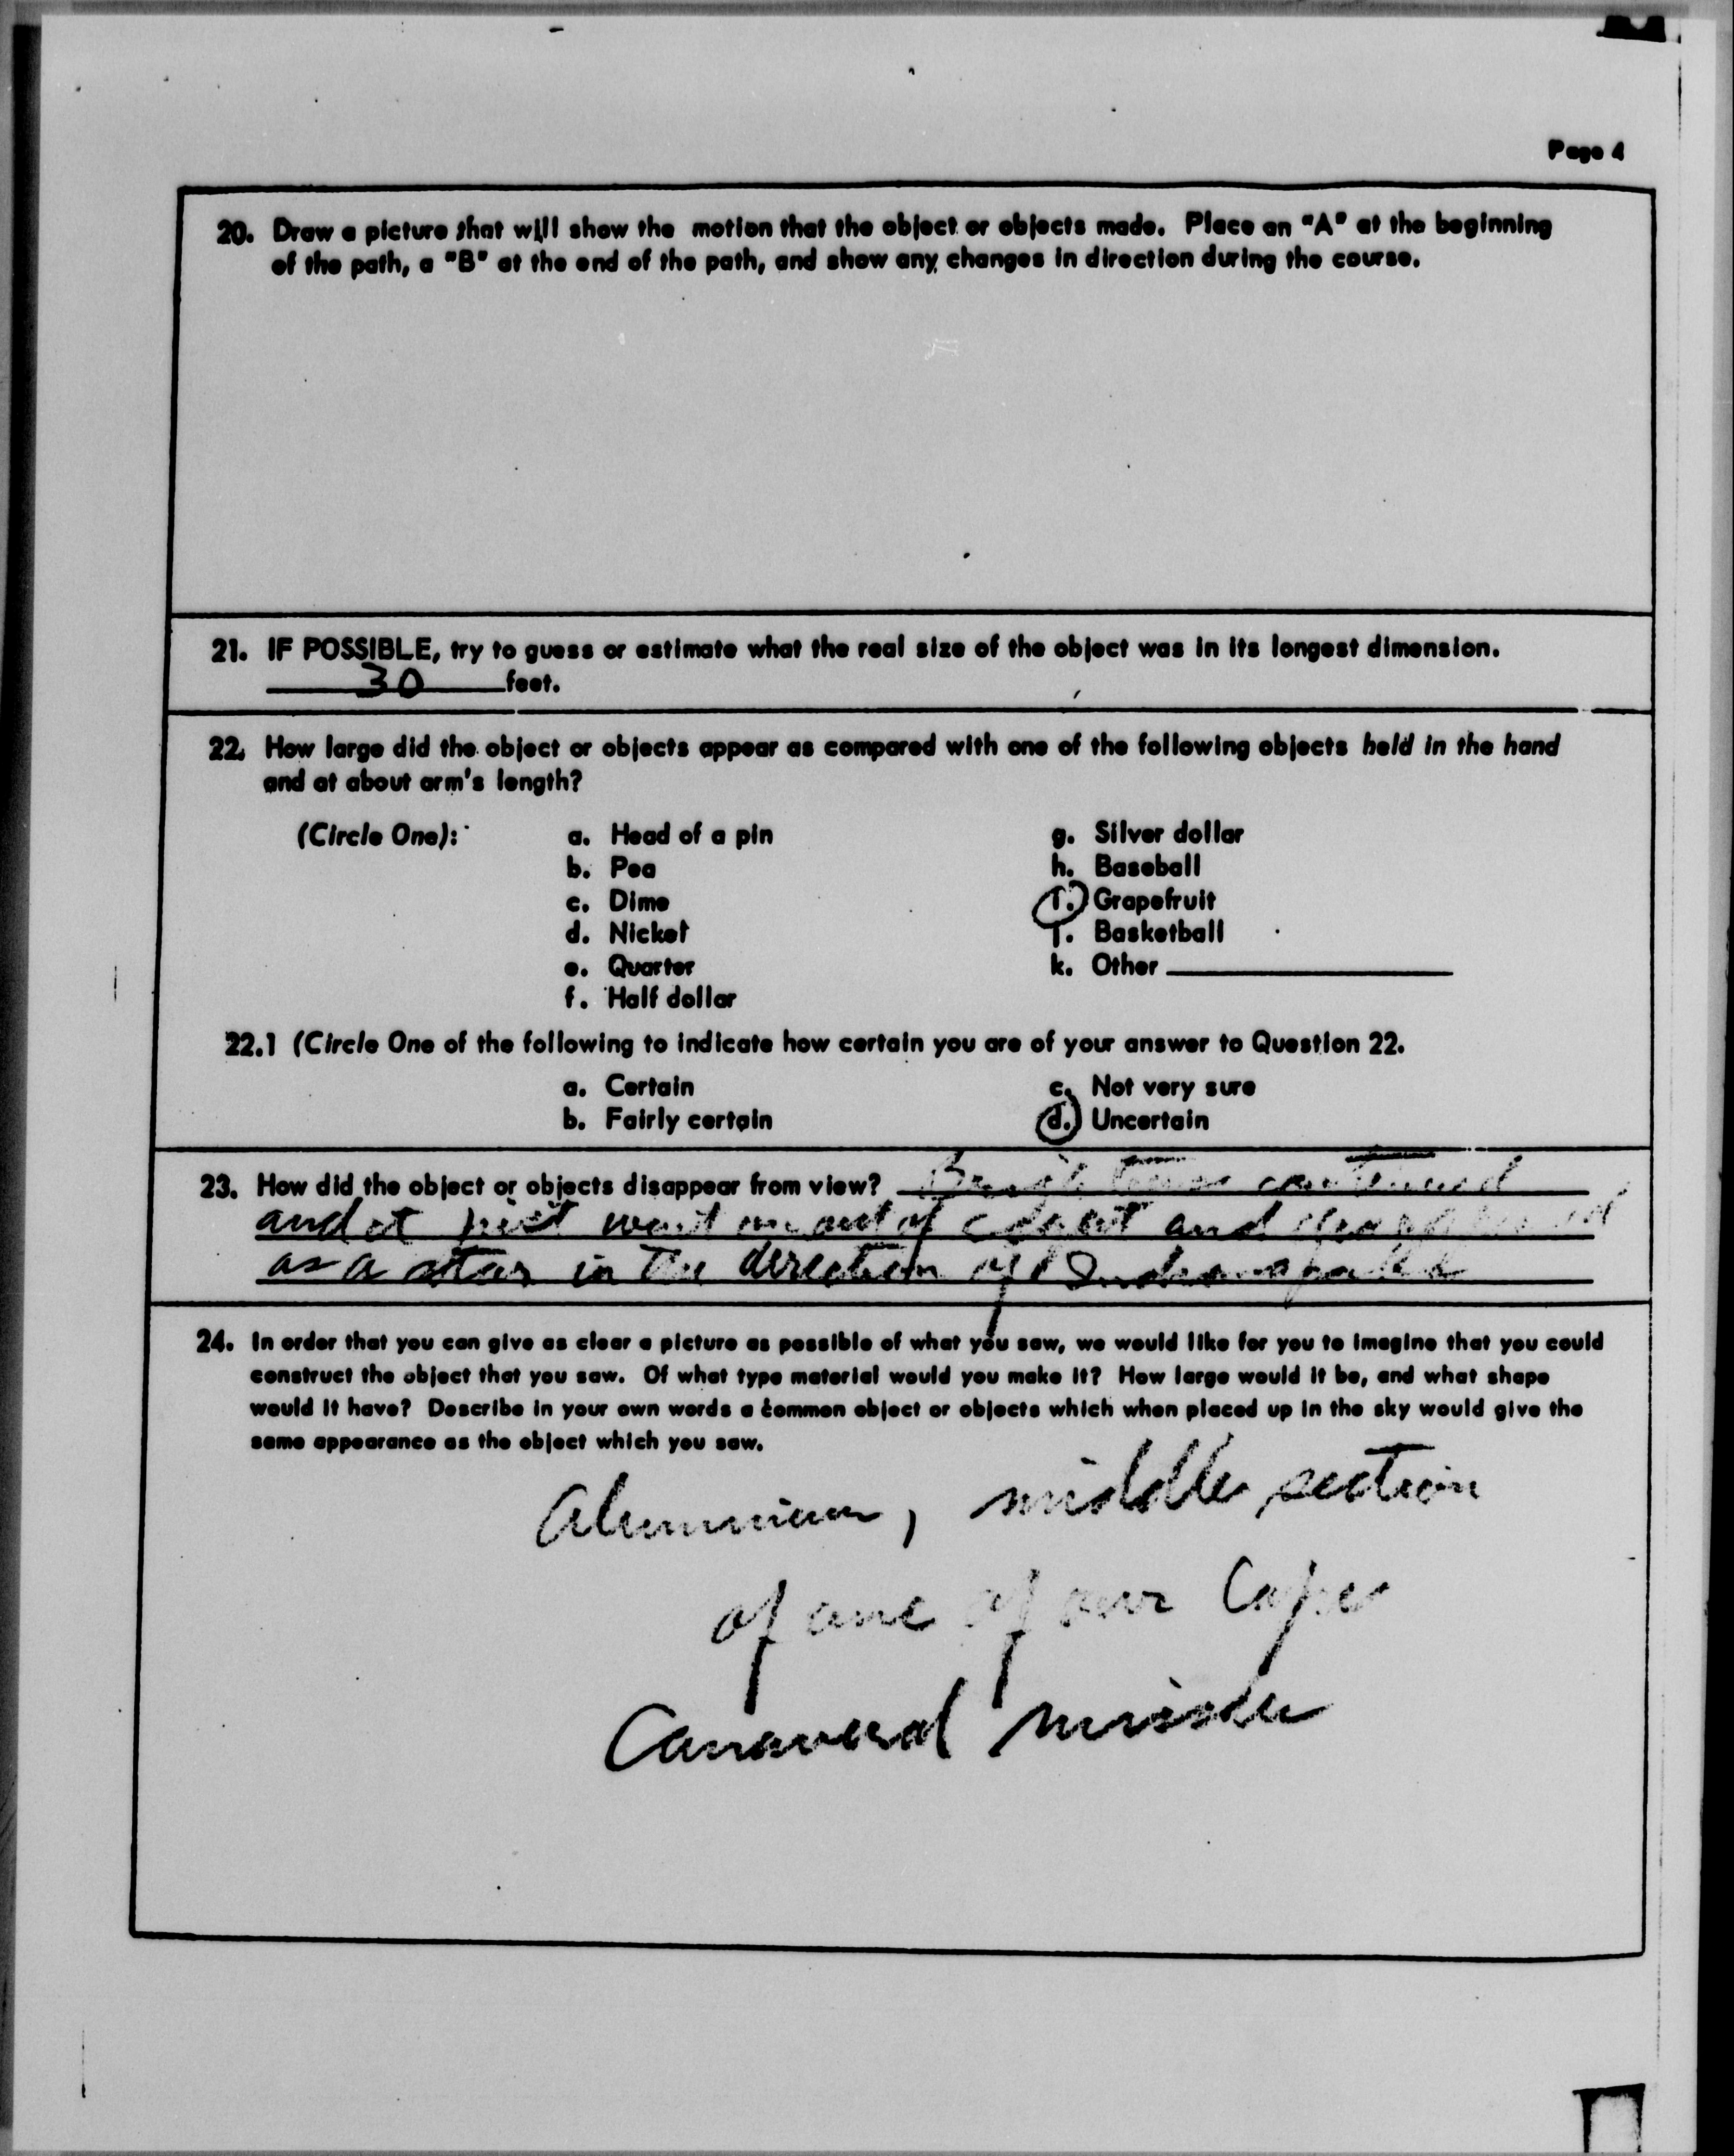 Page 4
20. Draw a picture that will show the motion that the object or objects made. Place an "A" at the beginning
of the path, a "B" at the end of the path, and show any changes in direction during the course.
21. IF POSSIBLE, try to guess or estimate what the real size of the object was in its longest dimension.
30 feet.
22. How large did the object or objects appear as compared with one of the following objects held in the hand
and at about arm's length?
(Circle One): a. Head of a pin g. Silver dollar
b. Pea h. Baseball
c. Dime i. Grapefruit
d. Nickel j. Basketball
e. Quarter k. Other
f. Half dollar
22.1 (Circle One of the following to indicate how certain you are of your answer to Question 22.
a. Certain c. Not very sure
b. Fairly certain d. Uncertain
23. How did the object or objects disappear from view? continued
and it just went on out of and
as a star in the direction of Indianapolis
24. In order that you can give as clear a picture as possible of what you saw, we would like for you to imagine that you could
construct the object that you saw. Of what type material would you make it? How large would it be, and what shape
would it have? Describe in your own words a common object or objects which when placed up in the sky would give the
same appearance as the object which you saw.
Aluminum, middle section
of one of our Cape
Canaveral missles